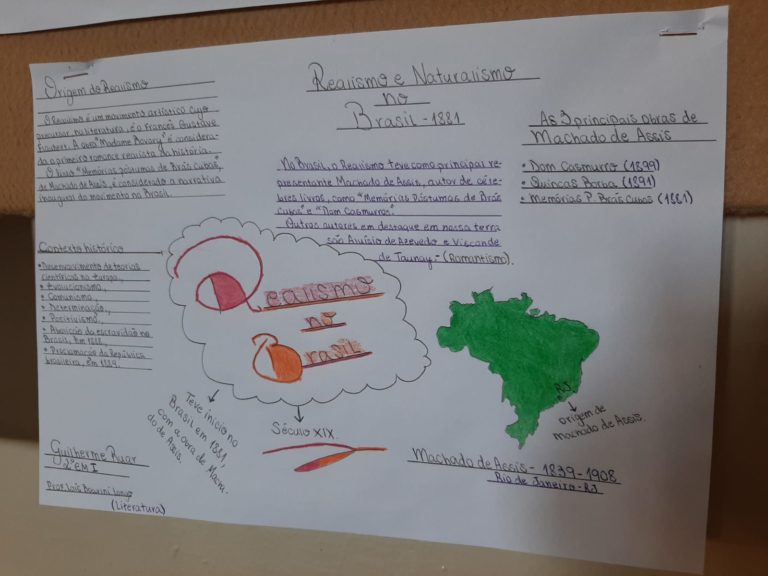 Origem do Realismo
O Realismo é um movimento artístico cujo
precursor, na literatura, é o francês Gustave
Flaubert. A obra "Madame Bovary" é considera-
da o primeiro romance realista da história.
O livro "Memórias póstumas de Brás Cubas",
de Machado de Assis, é considerado a narrativa
inaugural do movimento no Brasil.
Realismo e Naturalismo
no
Brasil - 1881
No Brasil, o Realismo teve como principal re-
presentante Machado de Assis, autor de céle-
bres livros, como "Memórias Póstumas de Brás
Cubas" e "Dom Casmurro".
Outros autores em destaque em nossa terra
são Aluísio de Azevedo e Visconde
de Taunay - (Romantismo).
As 3 principais obras de
Machado de Assis
• Dom Casmurro (1899)
• Quincas Borba (1891)
• Memórias P. Brás Cubas (1881)
Contexto histórico
• Desenvolvimento de teorias
científicas na Europa,
• Evolucionismo,
• Comunismo,
• Determinação,
• Positivismo,
• Abolição da escravidão no
Brasil, em 1888,
• Proclamação da República
brasileira, em 1889.
Realismo
no
Brasil
Teve início no
Brasil em 1881,
com a obra de Macha-
do de Assis.
Século XIX.
RJ
origem de
machado de Assis.
Machado de Assis - 1839-1908
Rio de Janeiro - RJ
Guilherme Ruar
2° EM I
Prof. Laís
(Literatura)